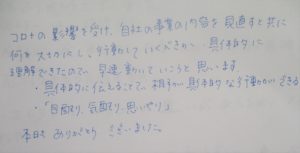 コロナの影響を受け、自社の事業の内容を見直すと共に
何を大切にし、行動していくべきか、具体的に
理解できたので早速動いていこうと思います
・具体的に伝えることで相手が具体的な行動ができる
・「目配り、気配り、思いやり」
本日ありがとうございました。